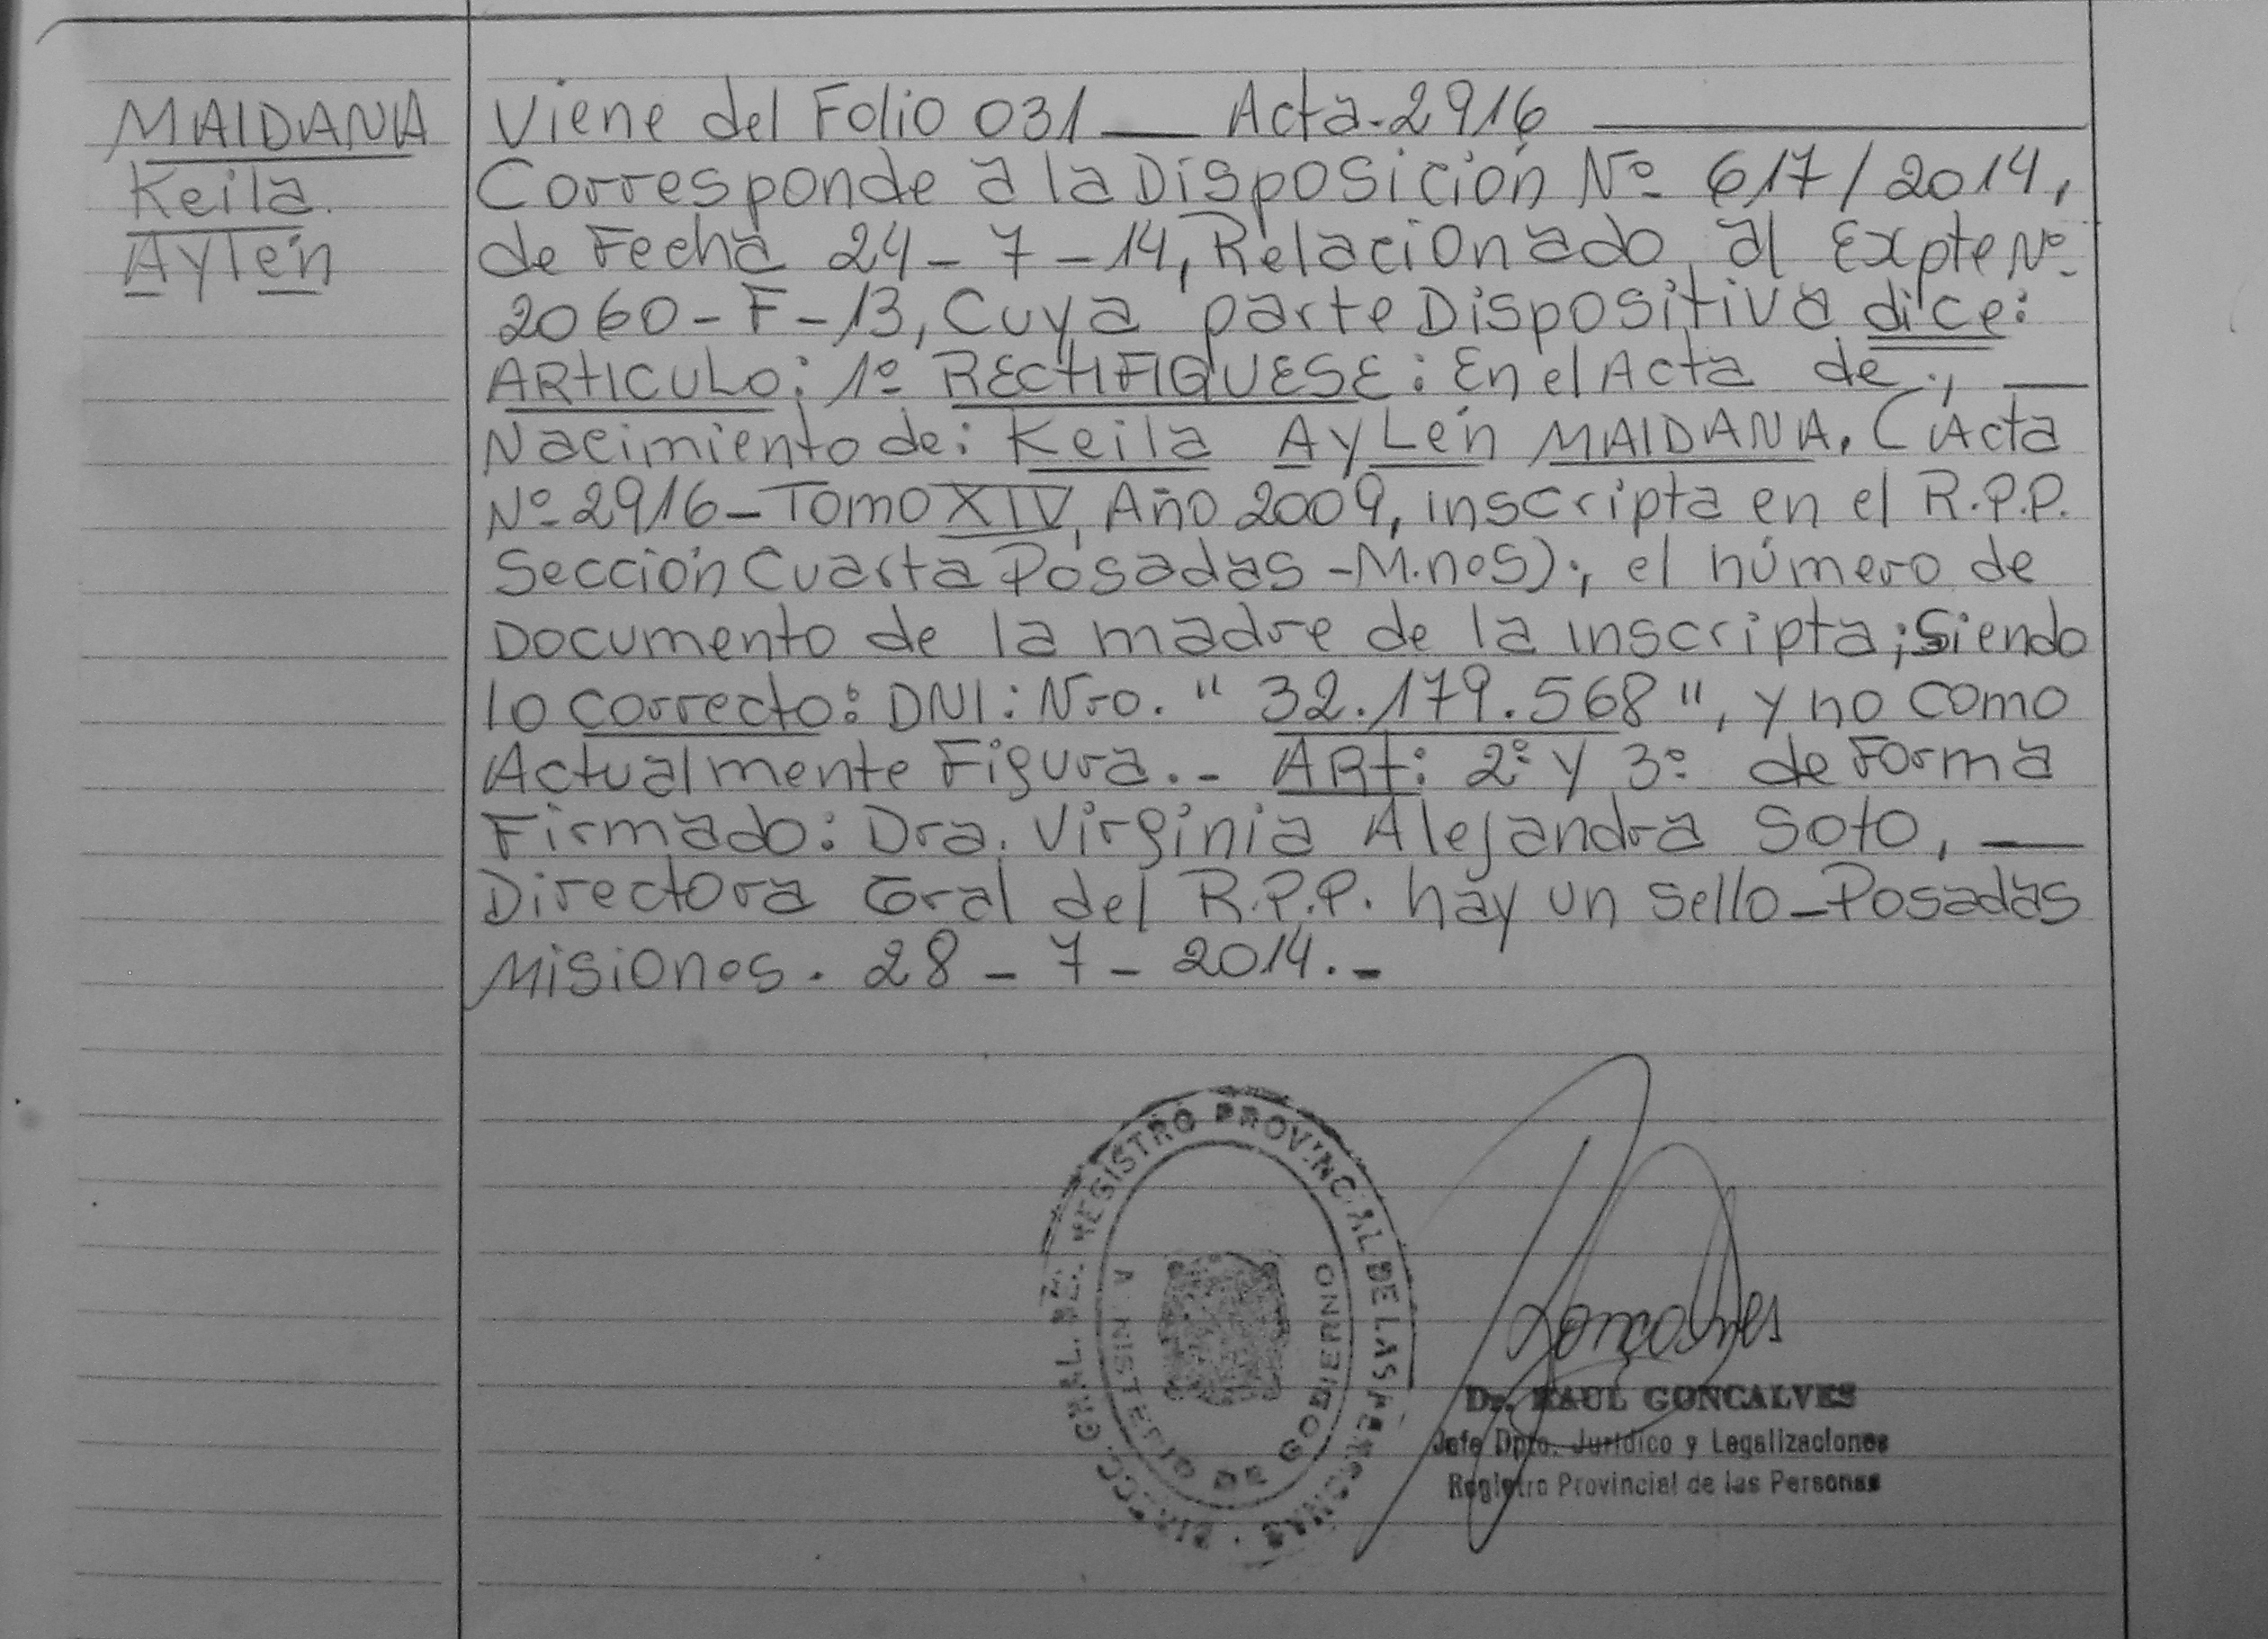 MAIDANA
Keila
Aylén
Viene del Folio 031 — Acta-2916
Corresponde a la Disposición Nº 617/2014,
de Fecha 24-7-14, Relacionado al Expte Nº
2060-F-13, Cuya parte Dispositiva dice:
ARTICULO: 1º RECTIFIQUESE: En el Acta de;, —
Nacimiento de: Keila Aylén MAIDANA. (Acta
Nº 2916-Tomo XIV, Año 2009, inscripta en el R.P.P.
Sección Cuarta Posadas-M.nes);, el número de
Documento de la madre de la inscripta; Siendo
lo correcto: DNI: Nro. "32.179.568", y no como
Actualmente Figura.- ART: 2º y 3º de Forma
Firmado: Dra. Virginia Alejandra Soto, —
Directora Gral del R.P.P. hay un sello-Posadas
Misiones. 28-7-2014.-
REGISTRO PROVINCIAL DE LAS PERSONAS
DE GOBIERNO
Goncalves
Dr. RAUL GONCALVES
Jefe Dpto. Jurídico y Legalizaciones
Registro Provincial de las Personas